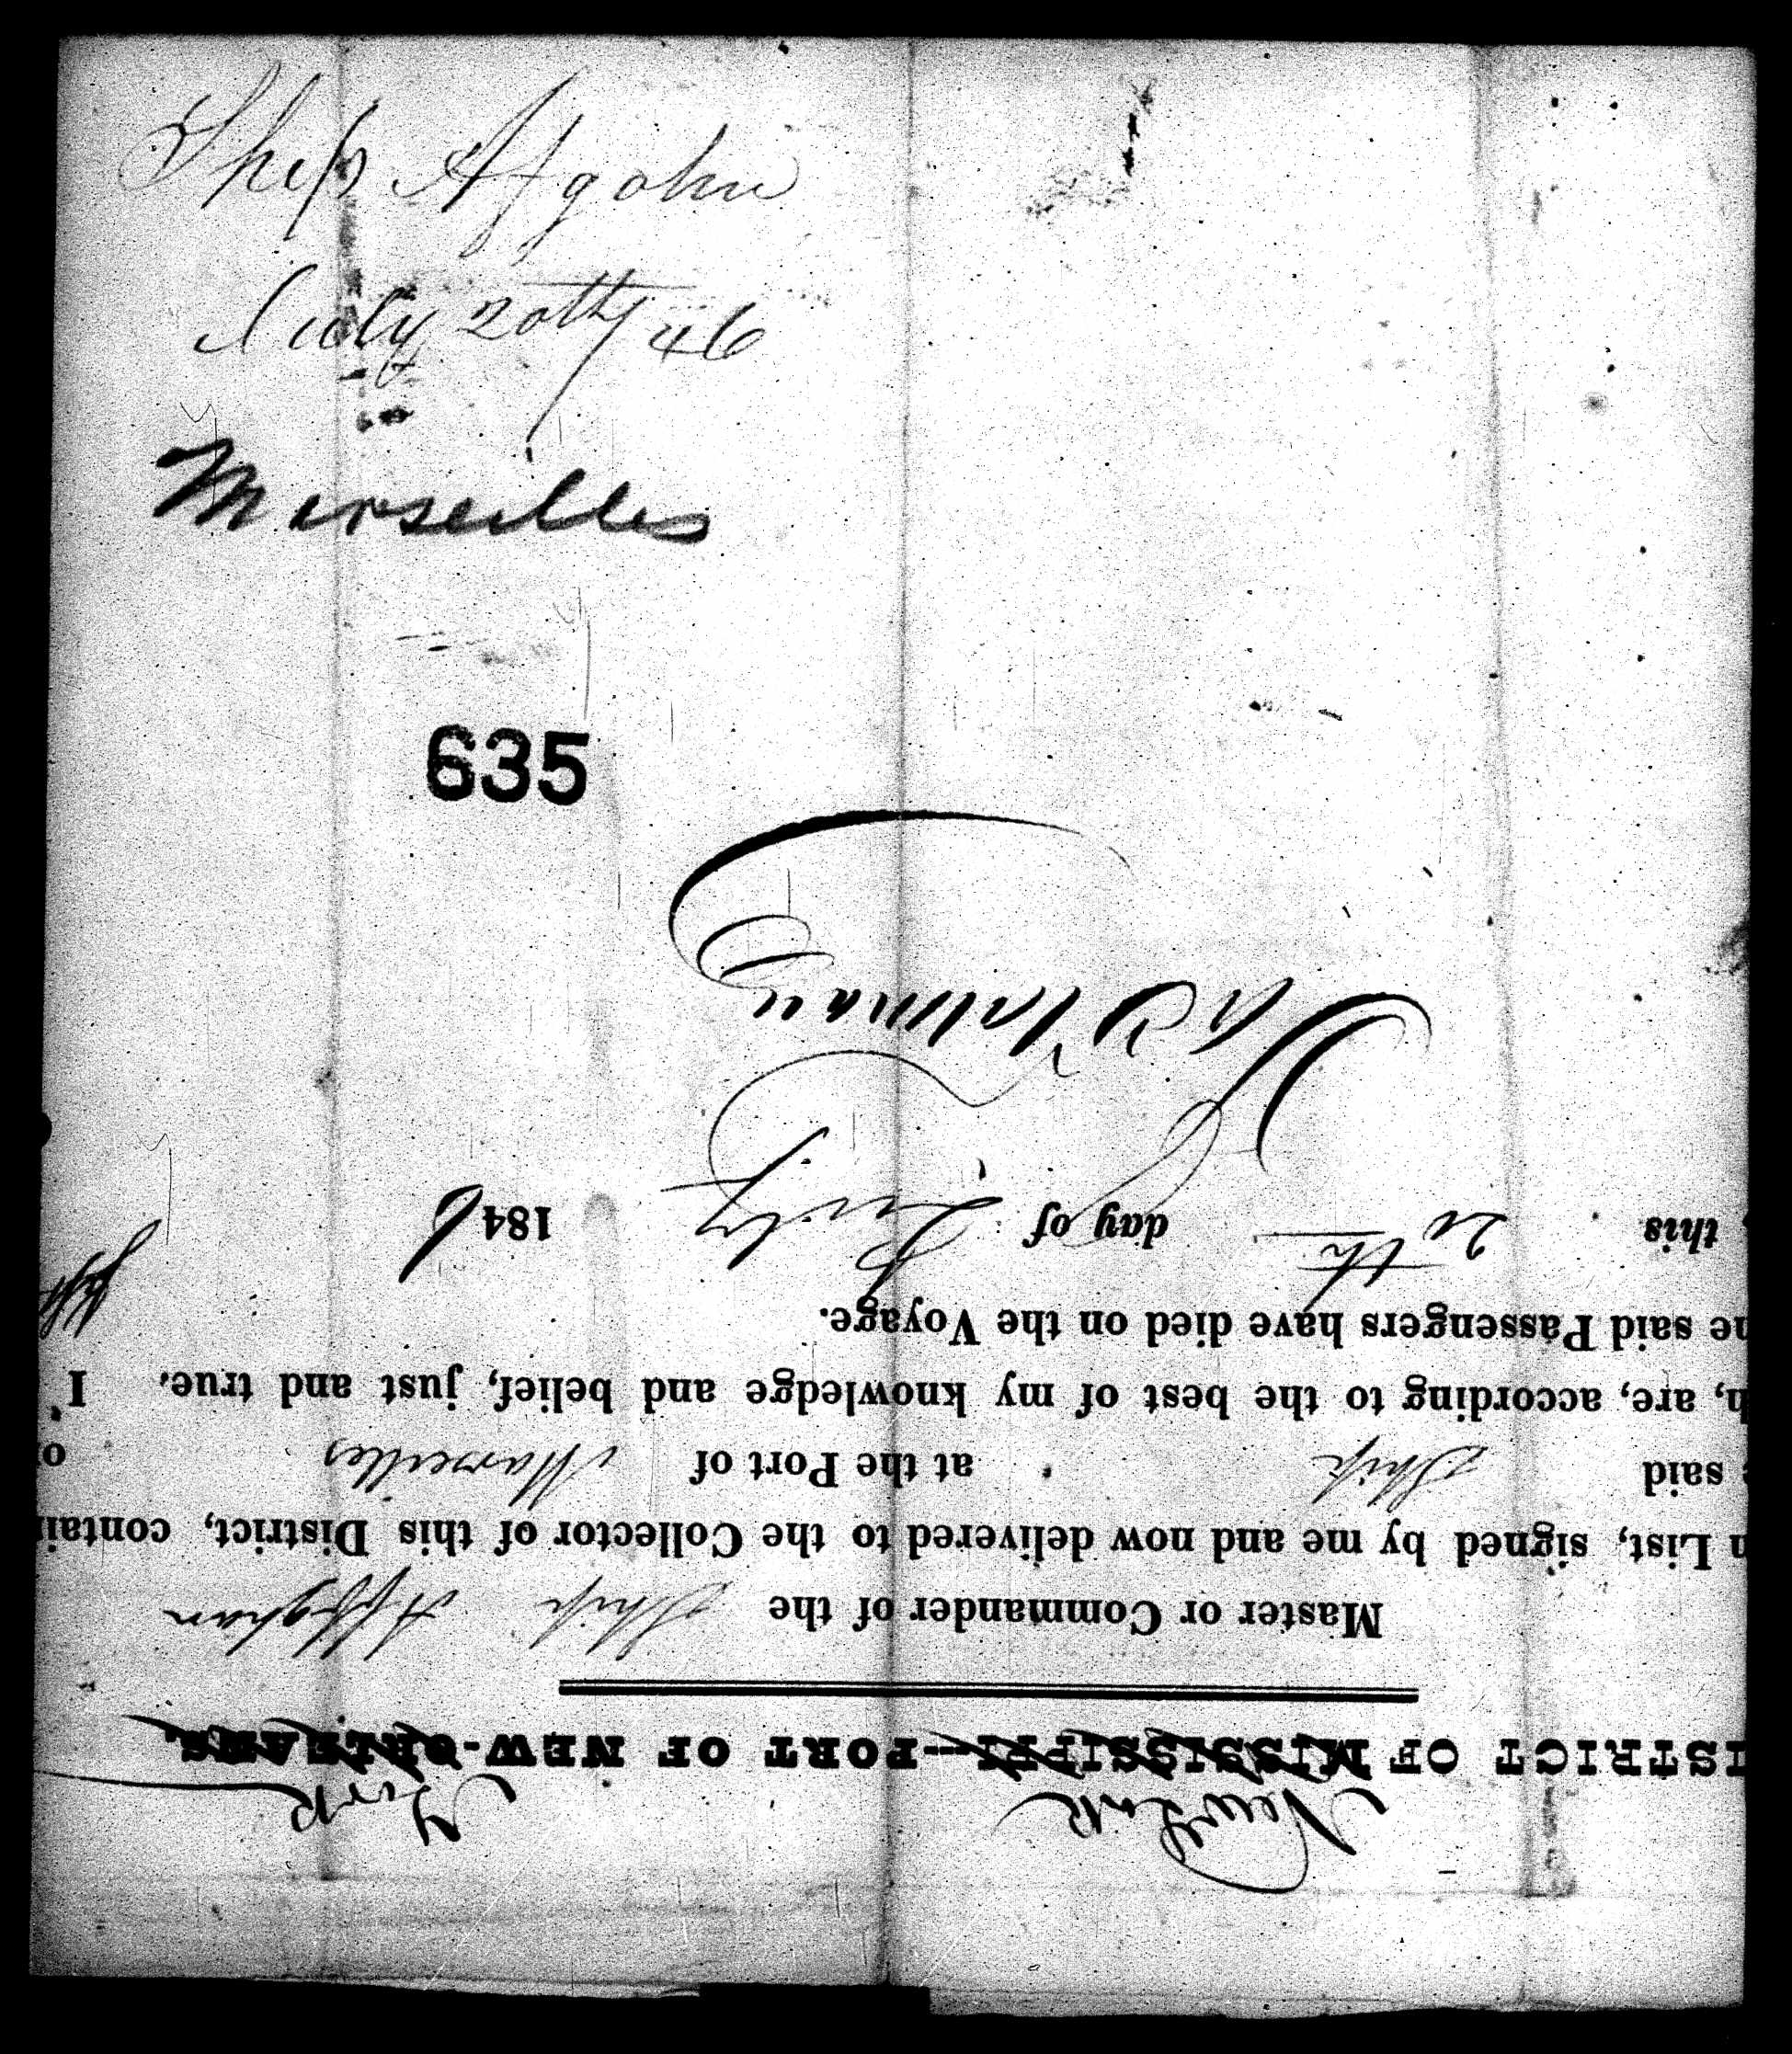 Ship Afgohn
July 20th / 46
Marseilles
635
New York York
ISTRICT OF MISSISSIPPI---PORT OF NEW-ORLEANS.
Master or Commander of the Ship Affghan
n List, signed by me and now delivered to the Collector of this District, contai
e said Ship at the Port of Marseilles o
h, are, according to the best of my knowledge and belief, just and true. I
he said Passengers have died on the Voyage.
this 20th day of July 1846